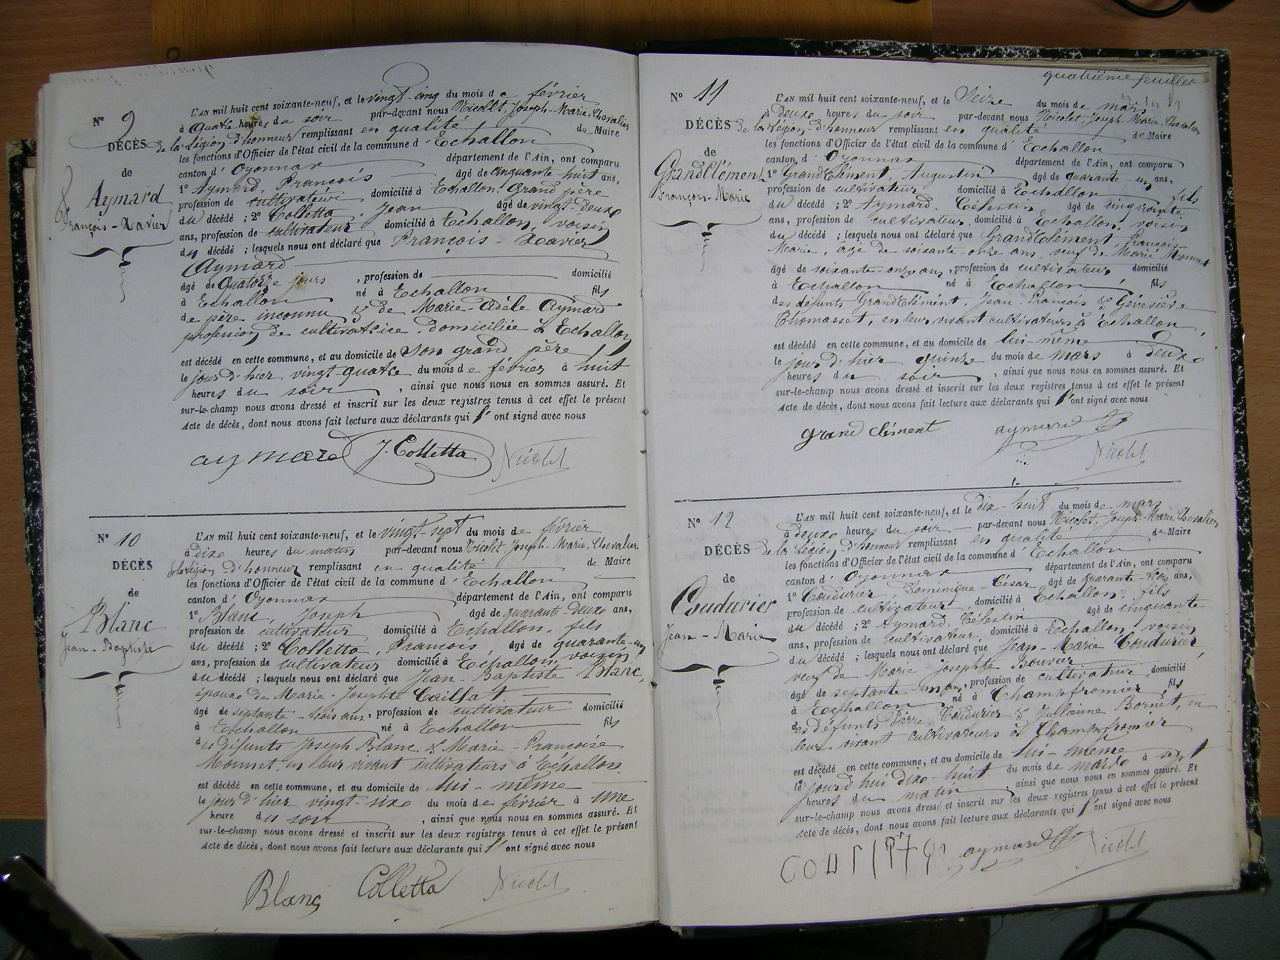 N° 9
DÉCÈS
de
Aymard
François-Xavier
L'AN mil huit cent soixante-neuf, et le vingt-cinq du mois de février
à Quatre heures du soir par-devant nous Nicolet, Joseph-Marie, Chevalier
de la Légion d'honneur remplissant en qualité de Maire
les fonctions d'Officier de l'état civil de la commune d'Echallon
canton d'Oyonnax département de l'Ain, ont comparu
1° Aymard, François âgé de cinquante huit ans,
profession de cultivateur domicilié à Echallon, Grand père
du décédé ; 2° Colletta Jean âgé de vingt-deux
ans, profession de cultivateur domicilié à Echallon, voisin
du décédé ; lesquels nous ont déclaré que François-Xavier
Aymard
âgé de Quatorze jours, profession de domicilié
à Echallon né à Echallon fils
de père inconnu & de Marie-Adèle Aymard
profession de cultivatrice domiciliée à Echallon
est décédé en cette commune, et au domicile de son grand père
le jour d'hier vingt-quatre du mois de février à huit
heures du soir, ainsi que nous nous en sommes assuré. Et
sur-le-champ nous avons dressé et inscrit sur les deux registres tenus à cet effet le présent
acte de décès, dont nous avons fait lecture aux déclarants qui l'ont signé avec nous
aymard J. Colletta Nicolet
N° 10
DÉCÈS
de
Blanc
Jean-Baptiste
L'AN mil huit cent soixante-neuf, et le vingt sept du mois de février
à deux heures du matin par-devant nous Nicolet, Joseph-Marie, Chevalier
de la légion d'honneur remplissant en qualité de Maire
les fonctions d'Officier de l'état civil de la commune d'Echallon
canton d'Oyonnax département de l'Ain, ont comparu
1° Blanc, Joseph âgé de quarante deux ans,
profession de cultivateur domicilié à Echallon, fils
du décédé ; 2° Colletta, François âgé de quarante-un
ans, profession de cultivateur domicilié à Echallon, voisin
du décédé ; lesquels nous ont déclaré que Jean-Baptiste Blanc,
époux de Marie-Josephte Caillat
âgé de septante-trois ans, profession de cultivateur domicilié
à Echallon né à Echallon fils
des défunts Joseph Blanc & Marie-Françoise
Monnet, en leur vivant cultivateurs à Echallon
est décédé en cette commune, et au domicile de lui-même
le jour d'hier vingt-six du mois de février à une
heure du soir, ainsi que nous nous en sommes assuré. Et
sur-le-champ nous avons dressé et inscrit sur les deux registres tenus à cet effet le présent
acte de décès, dont nous avons fait lecture aux déclarants qui l'ont signé avec nous
Blanc Colletta Nicolet
quatrième feuillet
N° 11
DÉCÈS
de
Grandclément
François-Marie
L'AN mil huit cent soixante-neuf, et le Seize du mois de mars
à deux heures du soir par-devant nous Nicolet, Joseph Marie, Chevalier
de la Légion d'honneur remplissant en qualité de Maire
les fonctions d'Officier de l'état civil de la commune d'Echallon
canton d'Oyonnax département de l'Ain, ont comparu
1° Grandclément, Augustin âgé de quarante-un ans,
profession de cultivateur domicilié à Echallon fils
du décédé ; 2° Aymard, Célestin âgé de cinquante
ans, profession de cultivateur domicilié à Echallon, voisin
du décédé ; lesquels nous ont déclaré que Grandclément, François
Marie, âgé de soixante-onze ans, veuf de Marie Monnet
âgé de soixante-onze ans, profession de cultivateur domicilié
à Echallon né à Echallon fils
des défunts Grandclément, Jean-François & Geneviève
Thomasset, en leur vivant cultivateurs à Echallon,
est décédé en cette commune, et au domicile de lui-même
le jour d'hier quinze du mois de mars à deux
heures du soir, ainsi que nous nous en sommes assuré. Et
sur-le-champ nous avons dressé et inscrit sur les deux registres tenus à cet effet le présent
acte de décès, dont nous avons fait lecture aux déclarants qui l'ont signé avec nous
grand clément aymard Nicolet
N° 12
DÉCÈS
de
Coudurier
Jean-Marie
L'AN mil huit cent soixante-neuf, et le dix-huit du mois de mars
à deux heures du soir par-devant nous Nicolet, Joseph-Marie, Chevalier
de la Légion d'honneur remplissant en qualité de Maire
les fonctions d'Officier de l'état civil de la commune d'Echallon
canton d'Oyonnax département de l'Ain, ont comparu
1° Coudurier, Dominique César âgé de quarante ans,
profession de cultivateur domicilié à Echallon, fils
du décédé ; 2° Aymard, Célestin âgé de cinquante
ans, profession de cultivateur, domicilié à Echallon, voisin
du décédé ; lesquels nous ont déclaré que Jean-Marie Coudurier,
veuf de Marie Josephte Bouvier
âgé de septante un ans, profession de cultivateur domicilié
à Echallon né à Champfromier fils
des défunts Coudurier & Julianne Bornet, en
leur vivant cultivateurs à Champfromier
est décédé en cette commune, et au domicile de lui-même
le jourd'hui dix-huit du mois de mars à sept
heures du matin, ainsi que nous nous en sommes assuré. Et
sur-le-champ nous avons dressé et inscrit sur les deux registres tenus à cet effet le présent
acte de décès, dont nous avons fait lecture aux déclarants qui l'ont signé avec nous
aymard Nicolet